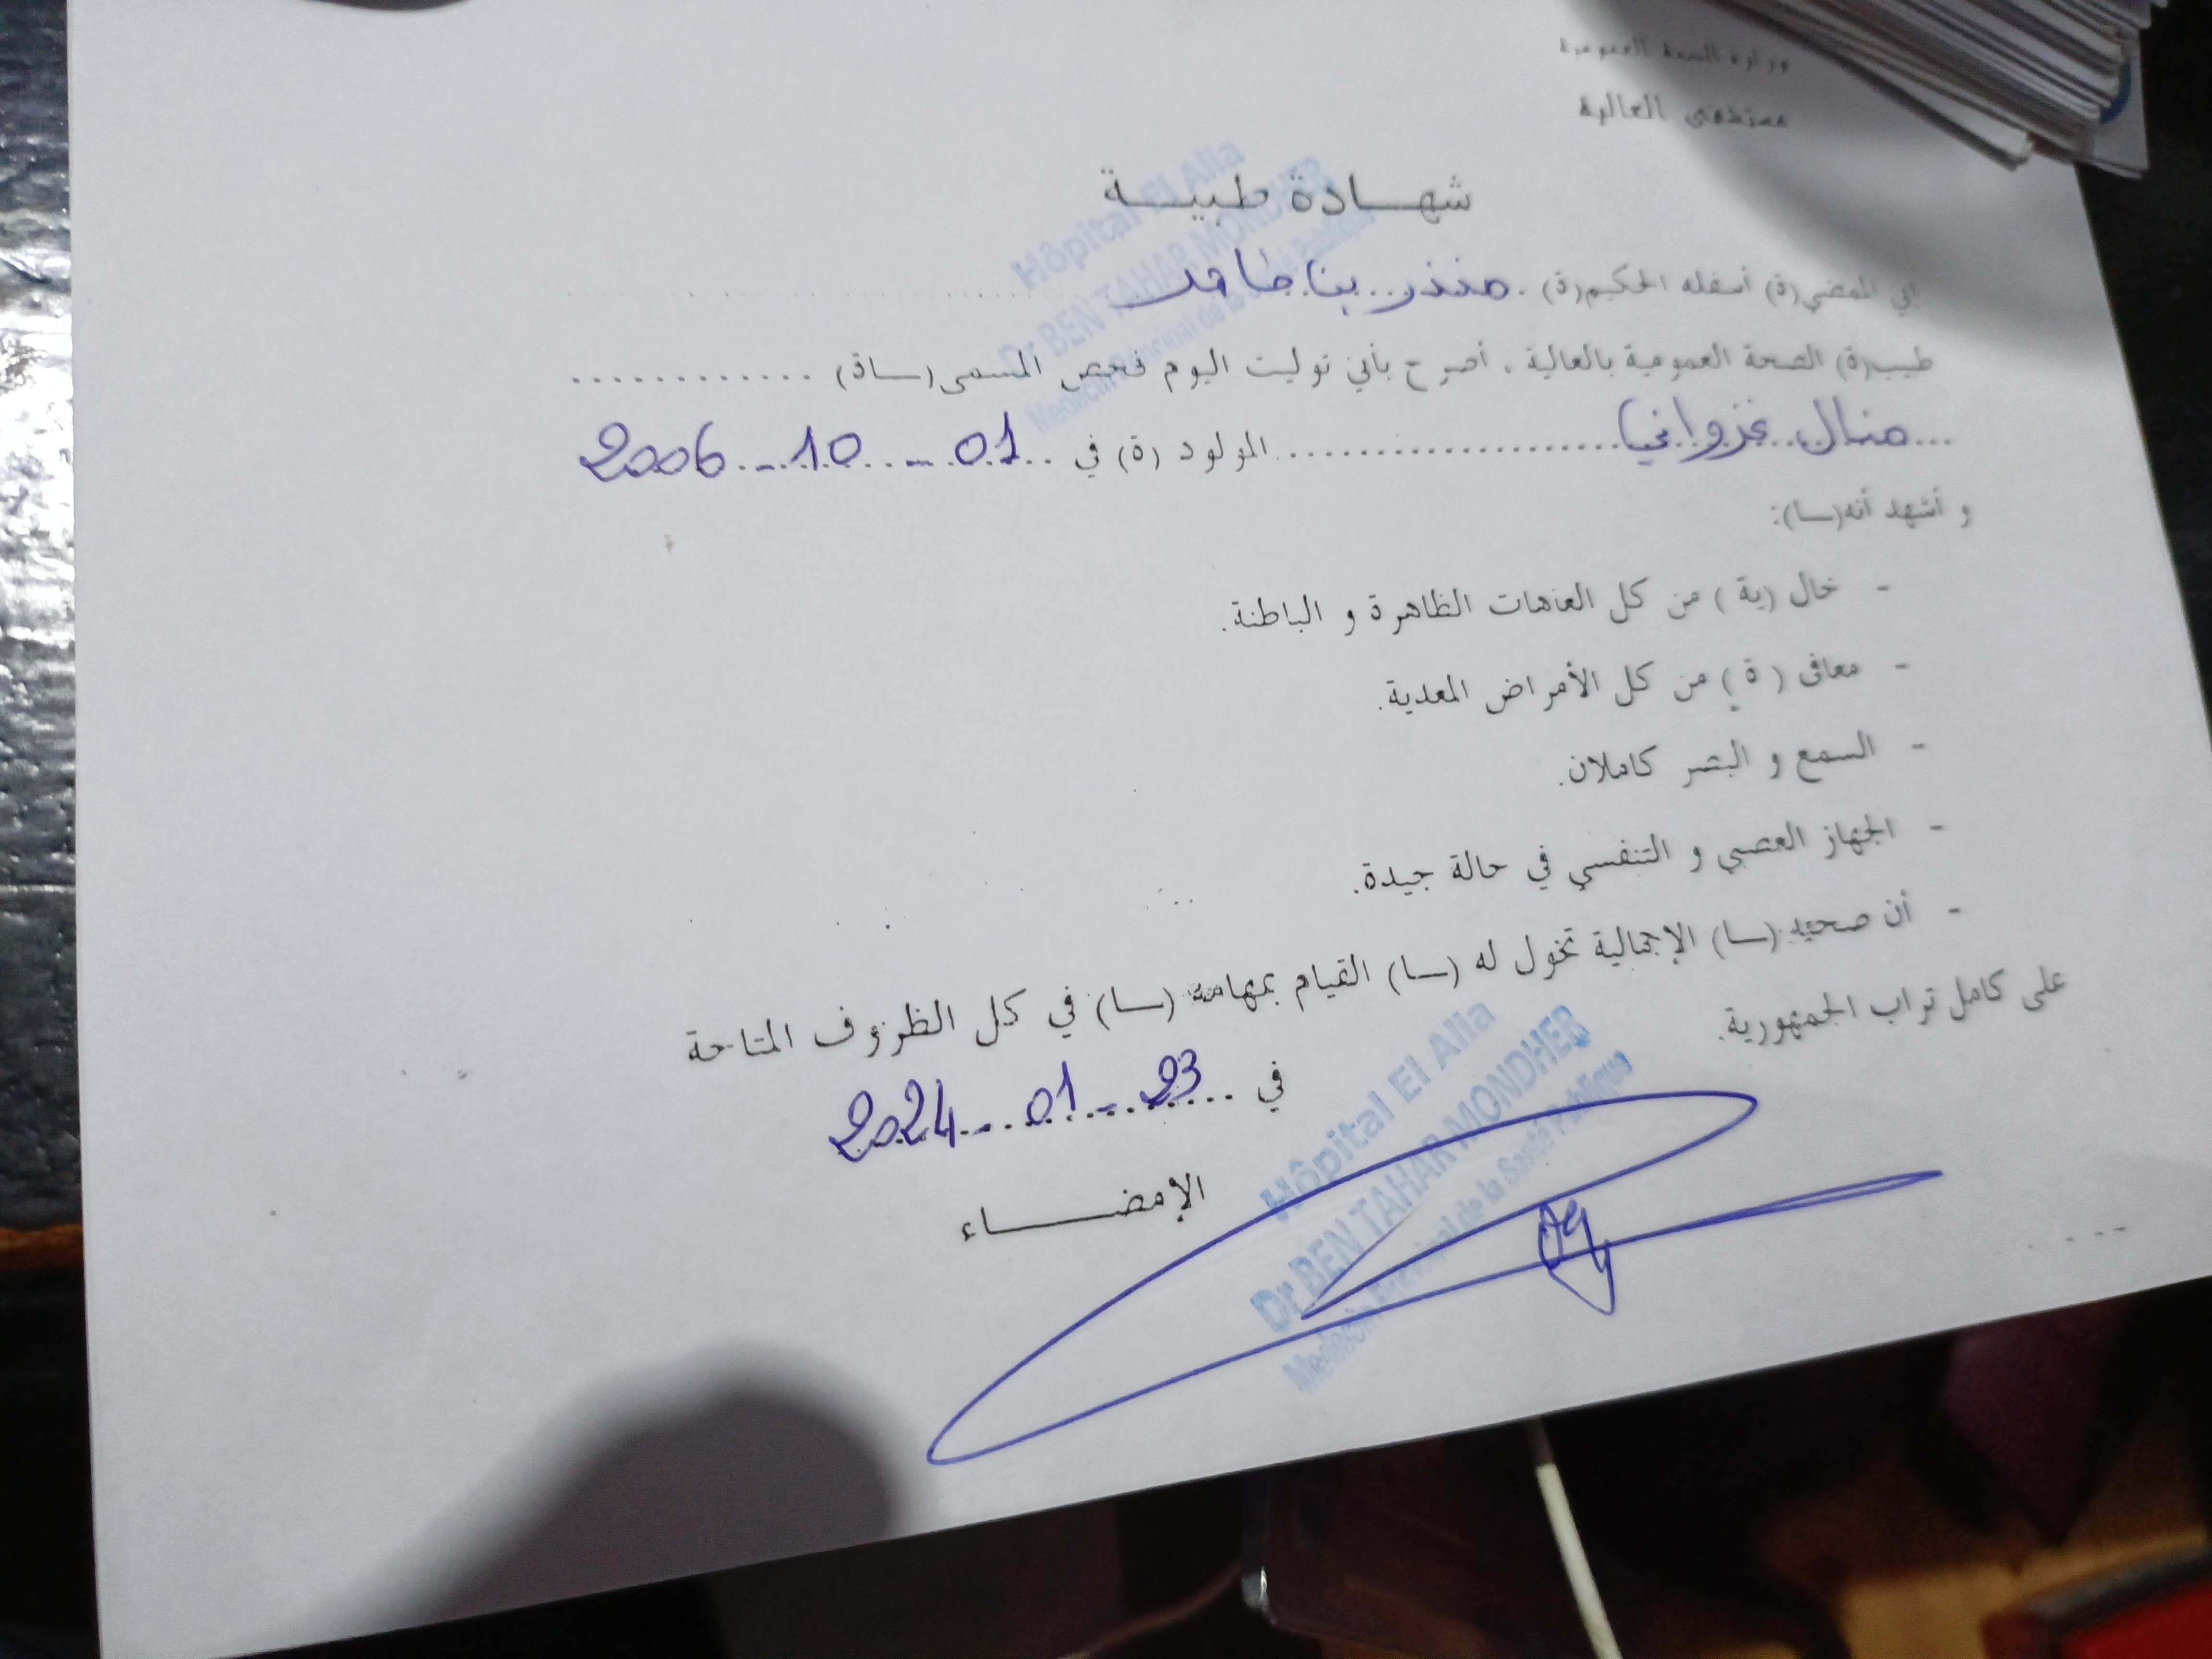 وزارة الصحة العمومية
مستشفى العالية
شهادة طبية
Hôpital El Alia
Dr BEN TAHAR MONDHER
Medecin Principal de la Santé Publique
إني الممضي(ة) أسفله الحكيم(ة) . منذر بن طاهر
طبيب(ة) الصحة العمومية بالعالية ، أصرح بأني توليت اليوم فحص المسمى(ـاة) ............
... منال غزواني .................. المولود (ة) في .. 01 - 10 - 2006
و أشهد أنه(ـا):
- خال (ية ) من كل العاهات الظاهرة و الباطنة.
- معافى ( ة ) من كل الأمراض المعدية.
- السمع و البصر كاملان.
- الجهاز العصبي و التنفسي في حالة جيدة.
- أن صحته (ـا) الإجمالية تخول له (ـا) القيام بمهامه (ـا) في كل الظروف المتاحة
على كامل تراب الجمهورية.
في ... 23 - 01 - 2024
الإمضاء
Hôpital El Alia
Dr BEN TAHAR MONDHER
Medecin Principal de la Santé Publique